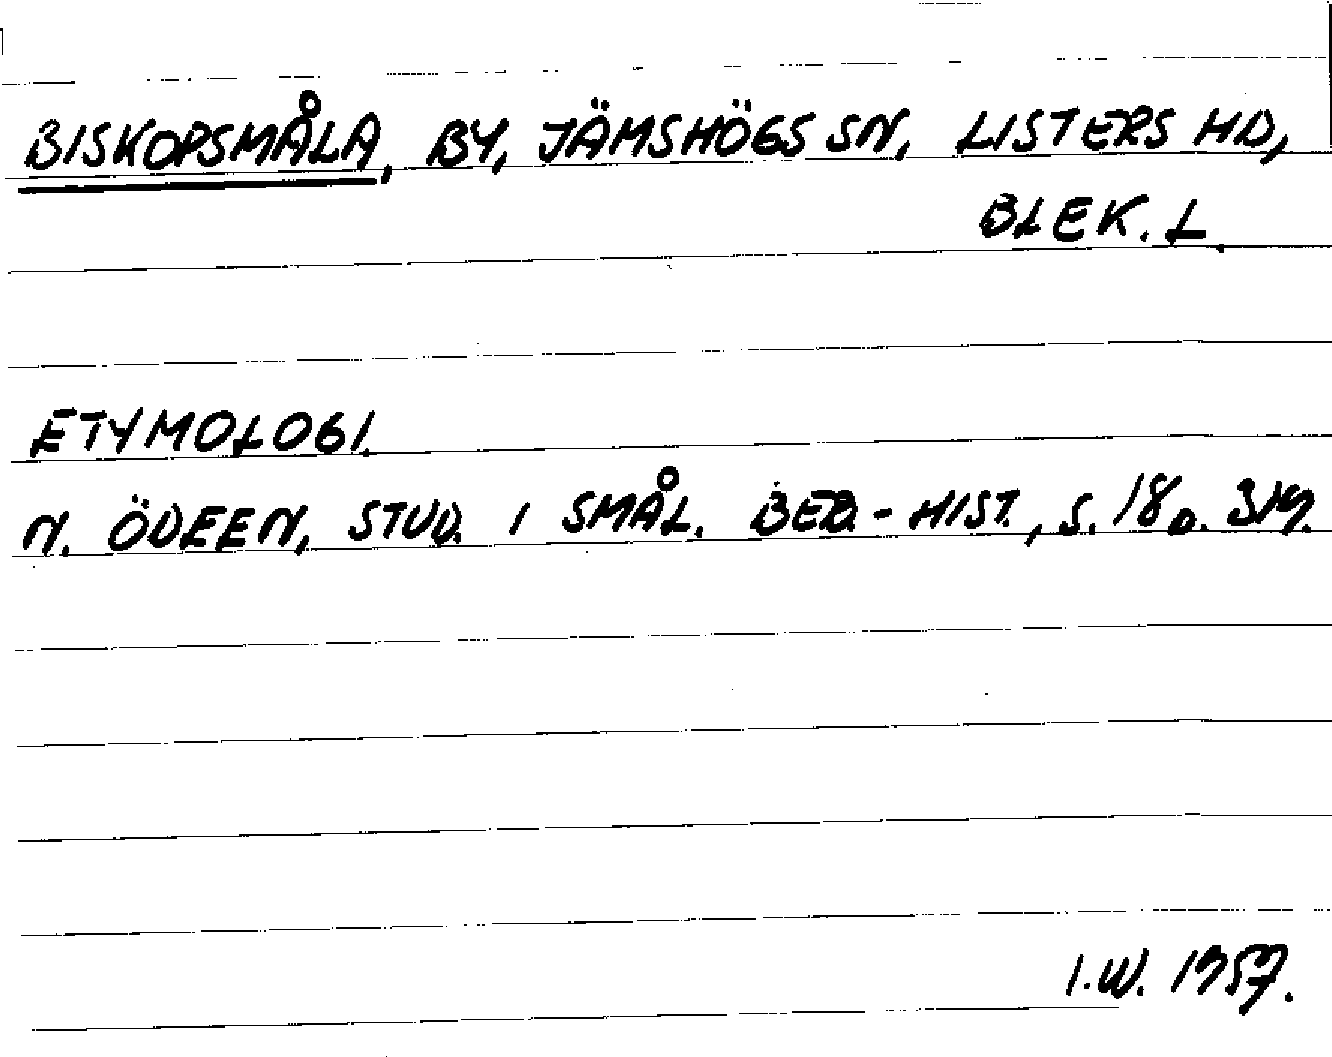 BISKOPSMÅLA, BY, JÄMSHÖGS SN, LISTERS HD,
BLEK. L.
ETYMOLOGI.
N. ÖDEEN, STUD. I SMÅL. BEB.-HIST., S. 18 o. 319.
I.W. 1957.